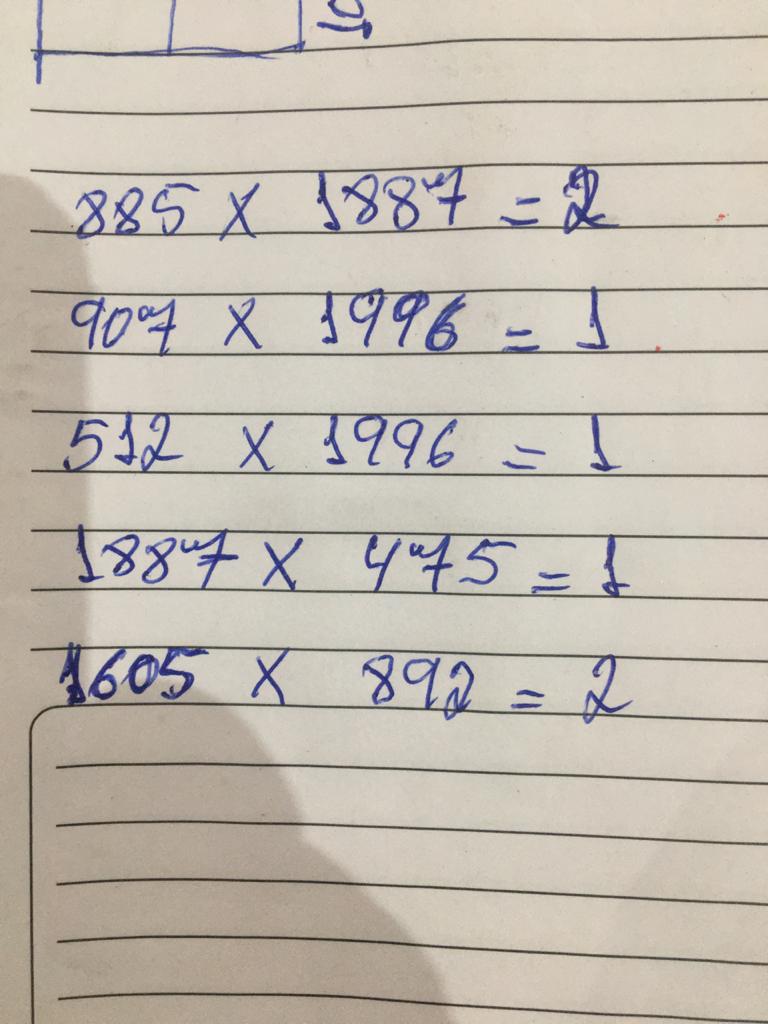 10
885 X 1887 = 2
907 X 1996 = 1
512 X 1996 = 1
1887 X 475 = 1
1605 X 892 = 2